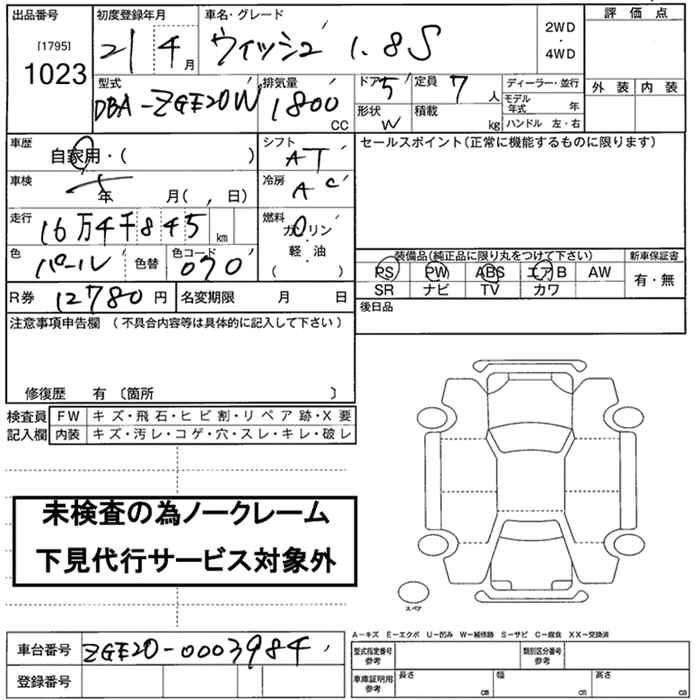 出品番号 初度登録年月 車名・グレード 評価点
[1795] 1023 21 4月 ウィッシュ 1.8S 2WD・4WD
外装 内装
型式 排気量 ドア 5 定員 7人 ディーラー・並行
DBA-ZGE20W 1800cc 形状 W 積載 kg モデル年式 年
ハンドル 左・右
車歴 自家用・( ) シフト AT セールスポイント(正常に機能するものに限ります)
車検 年 月( 日) 冷房 AC
走行 16万4千845km 燃料 ガソリン・軽・油( )
色 パール 色替 色コード 070
装備品(純正品に限り丸をつけて下さい) 新車保証書
PS PW ABS エアB AW 有・無
SR ナビ TV カワ
R券 12780円 名変期限 月 日 後日品
注意事項申告欄 (不具合内容等は具体的に記入して下さい)
修復歴 有 〔箇所 〕
検査員 FW キズ・飛石・ヒビ割・リペア跡・X要
記入欄 内装 キズ・汚レ・コゲ・穴・スレ・キレ・破レ
未検査の為ノークレーム
下見代行サービス対象外
スペア
A-キズ E-エクボ U-凹み W-補修跡 S-サビ C-腐食 XX-交換済
車台番号 ZGE20-0003984 型式指定番号 参考 類別区分番号 参考
登録番号 車庫証明用 参考 長さ cm 幅 cm 高さ cm